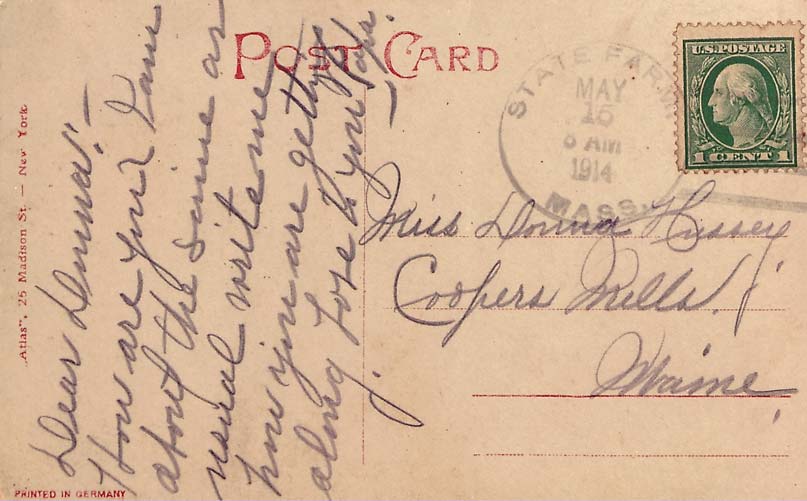 POST CARD
U.S. POSTAGE
1 CENT 1
STATE FARM
MAY
15
6 AM
1914
MASS.
Dear Donna:—
How are you? I am
about the same as
usual write me
how you are gettyn
along Love to you
Papa.
Miss Donna Hussey
Coopers Mills,
Maine
Atlas", 25 Madison St. — New York.
PRINTED IN GERMANY